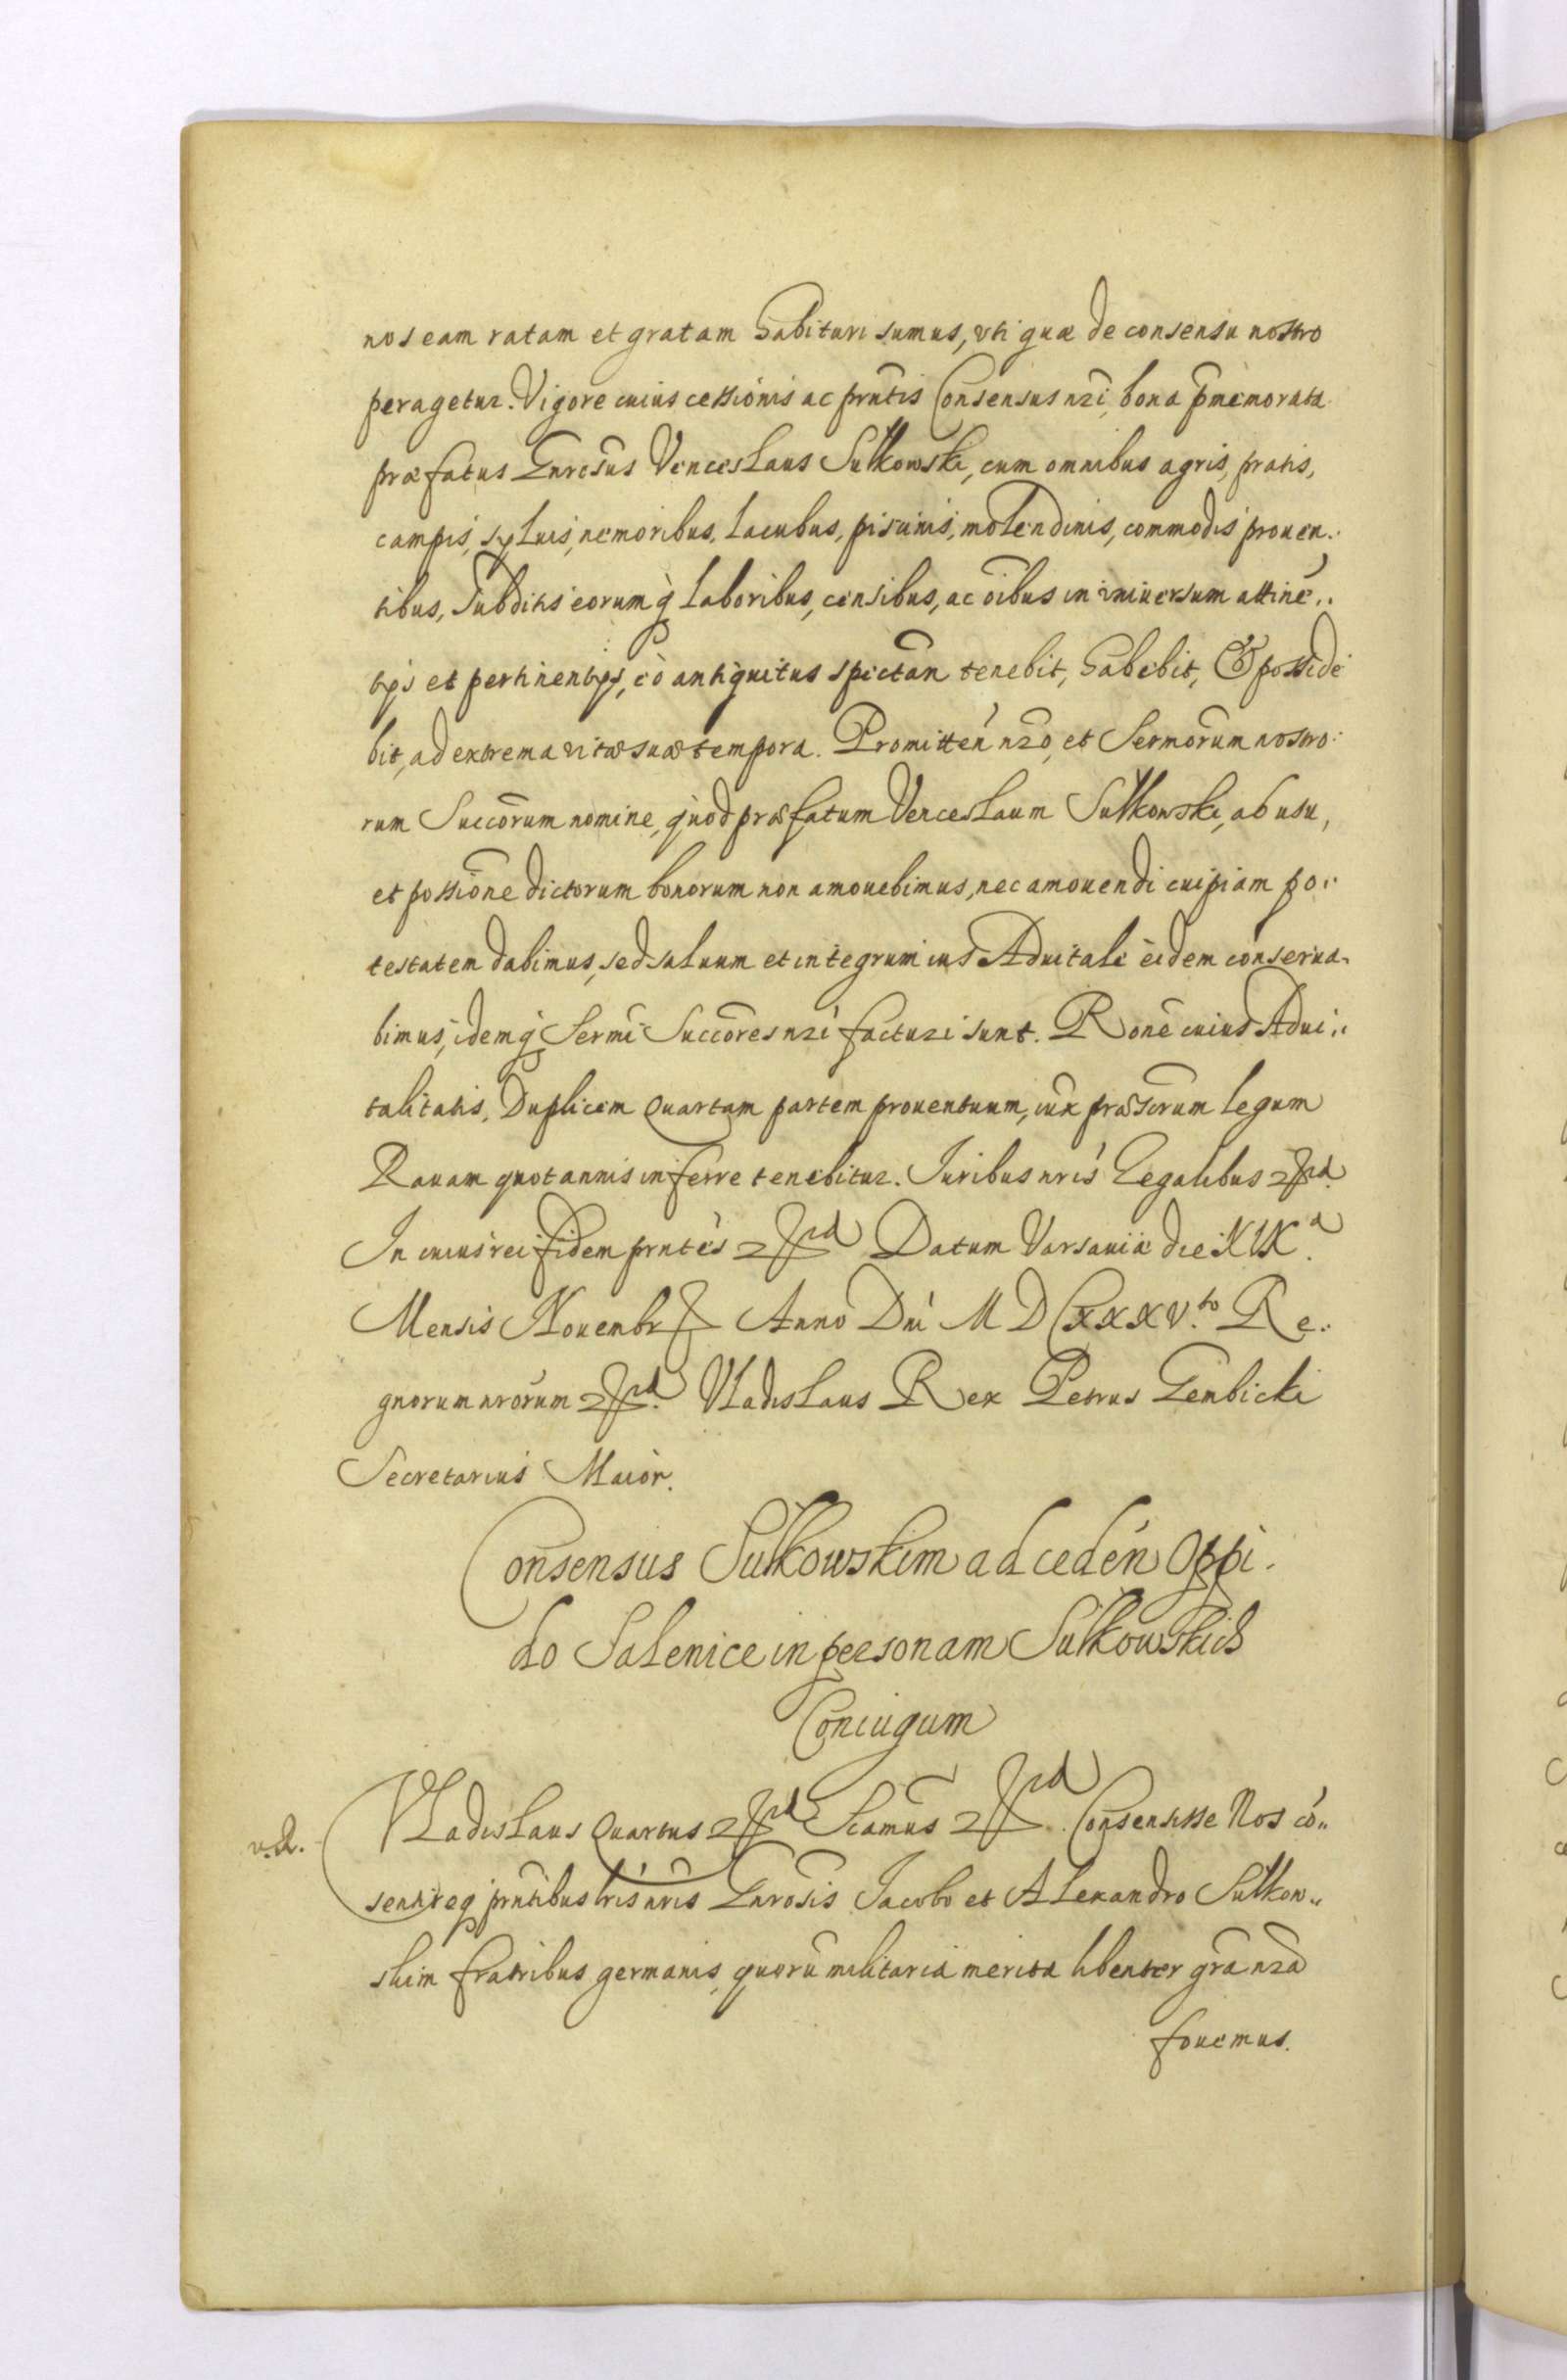 nos eam ratam et gratam habituri sumus, vti quæ de consensu nostro
peragetur. Vigore cuius cessionis ac prntis Consensus nri, bona pmemorata
præfatus Gnrosus Venceslaus Sułkowski, cum omnibus agris, pratis,
campis, syluis, nemoribus, lacubus, piscinis, molendinis, commodis prouen..
tibus, subditis eorumq laboribus, censibus, ac oibus in vniuersum attinē..
tys et pertinentys, eò antiquitus spectan tenebit, habebit, & posside
bit, ad extrema vitæ suæ tempora. Promitten nro, et Sermorum nostro:
rum Succorum nomine, quod præfatum Venceslaum Sułkowski, ab usu,
et possione dictorum bonorum non amouebimus, nec amouendi cuipiam po..
testatem dabimus, sed saluum et integrum ius Aduitale eidem conserua.
bimus, idemq Sermi Succores nri facturi sunt. Rone cuius Adui..
talitatis, Duplicem Quartam partem prouentuum, iux præscrum legum
Rauam quotannis inferre tenebitur. Juribus nris Regalibus
In cuius rei fidem prntes Datum Varsauiæ die XIX a.
Mensis Nouembr Anno Dni M D CXXXV.to Re.
gnorum nrorum Vladislaus Rex Petrus Gembicki
Secretarius Maior.
Consensus Sułkowskim ad ceden Oppi.
do Salenice in personam Sułkowskich
Coniugum
v.d. Vladislaus Quartus Scamus Consensisse Nos cō..
sentireq prntibus lris nris Gnrosis Jacobo et Alexandro Sułkow..
skim fratribus germanis, quorū militaria merita libenter gra nra
fouemus.